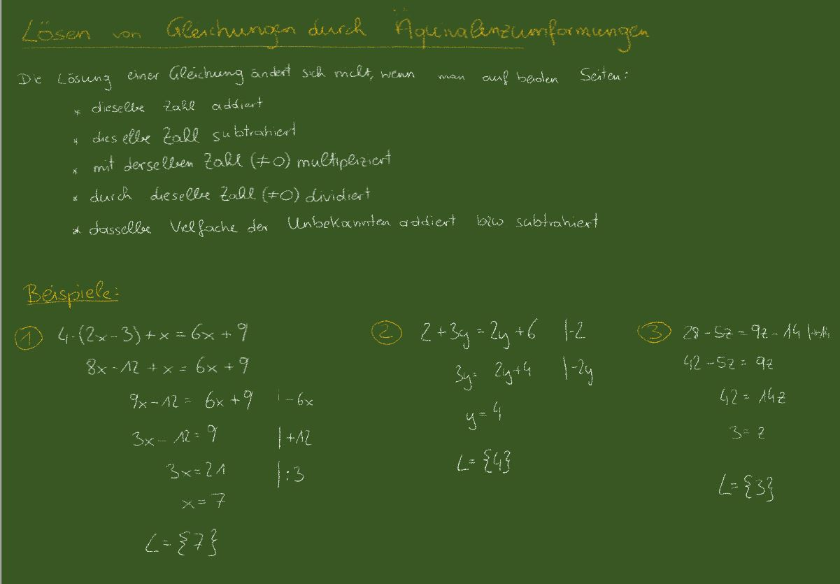 Lösen von Gleichungen durch Äquivalenzumformungen
Die Lösung einer Gleichung ändert sich nicht, wenn man auf beiden Seiten:
* dieselbe Zahl addiert
* dieselbe Zahl subtrahiert
* mit derselben Zahl (≠0) multipliziert
* durch dieselbe Zahl (≠0) dividiert
* dasselbe Vielfache der Unbekannten addiert bzw subtrahiert
Beispiele:
1 4·(2x-3)+x=6x+9
8x-12+x=6x+9
9x-12=6x+9 |-6x
3x-12=9 |+12
3x=21 |:3
x=7
L={7}
2 2+3y=2y+6 |-2
3y=2y+4 |-2y
y=4
L={4}
3 28-5z=9z-14 |+14
42-5z=9z
42=14z
3=z
L={3}